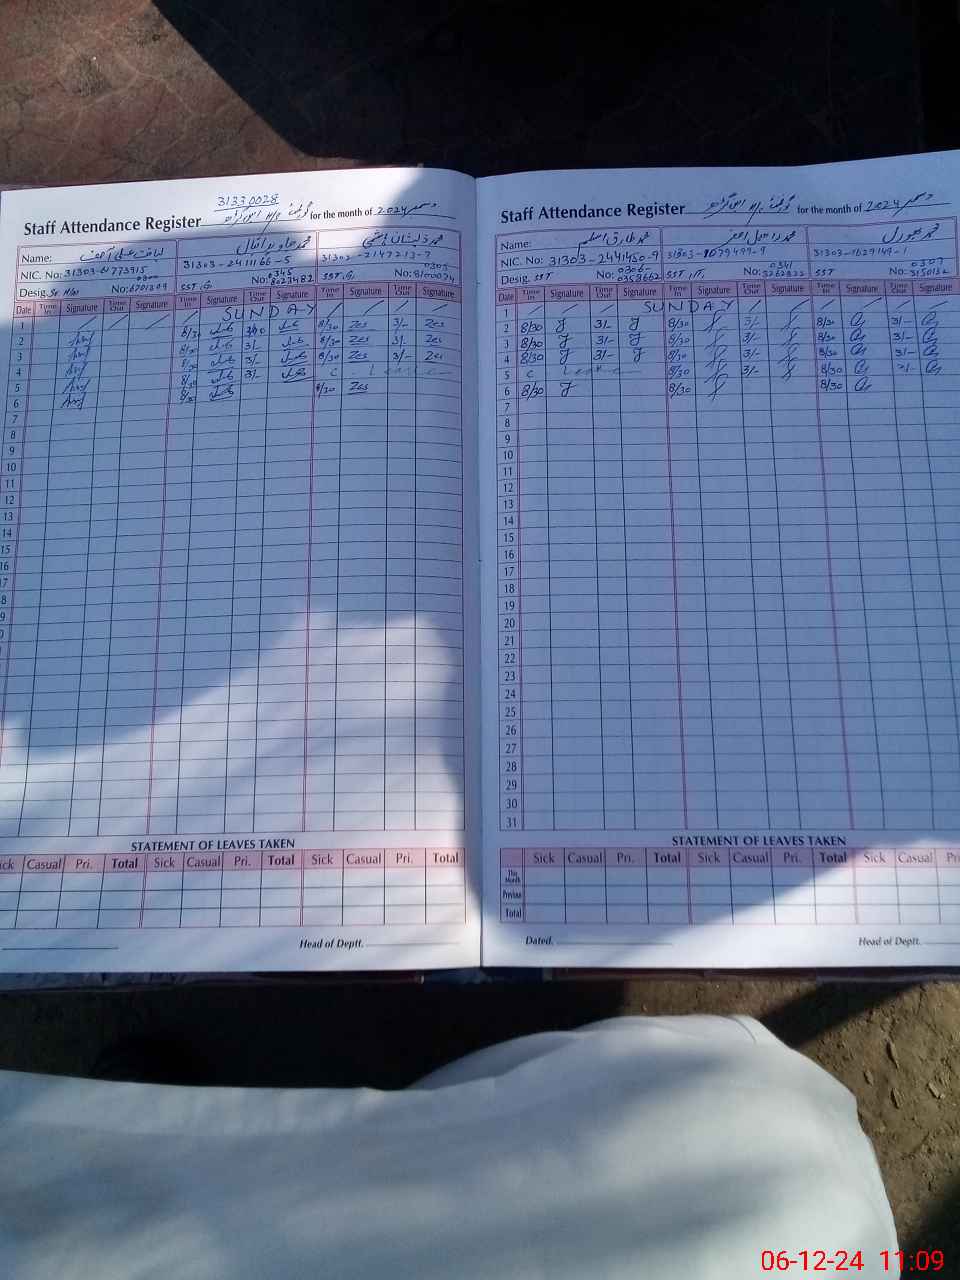 31330028
Staff Attendance Register for the month of دسمبر 2024
Name: محمد جاوید اقبال محمد ذیشان ہاشمی
NIC. No: 31303- 773915 31303-2411166-5 31303-2147213-7
Desig. No: 6701209 SST.G No: 0345 8023482 SST.G No: 0305 8100074
Date Time In Signature Time Out Signature Time In Signature Time Out Signature Time In Signature Time Out Signature
1 SUNDAY
2 8/30 3/00 8/30 Zes 3/- Zes
3 8/30 3/- 8/30 Zes 3/- Zes
4 8/30 3/- 8/30 Zes 3/- Zes
5 8/30 3/- C - Leave -
6 8/30 8/30 Zes
7
8
9
10
11
12
13
14
15
16
17
8
9
0
STATEMENT OF LEAVES TAKEN
ick Casual Pri. Total Sick Casual Pri. Total Sick Casual Pri. Total
Head of Deptt.
Staff Attendance Register for the month of دسمبر 2024
Name: محمد طارق اسلم
NIC. No: 31303-2441450-9 31303- 079499-9 31303-1629149-1
Desig. SST No: 0306- 0358662 SST, IT, No: 0341 3262822 SST No: 0307 3150132
Date Time In Signature Time Out Signature Time In Signature Time Out Signature Time In Signature Time Out Signature
1 SUNDAY
2 8/30 3/- 8/30 3/- 8/30 3/-
3 8/30 3/- 8/30 3/- 8/30 3/-
4 8/30 3/- 8/30 3/- 8/30 3/-
5 C Leave 8/30 3/- 8/30 3/-
6 8/30 8/30 8/30
7
8
9
10
11
12
13
14
15
16
17
18
19
20
21
22
23
24
25
26
27
28
29
30
31
STATEMENT OF LEAVES TAKEN
Sick Casual Pri. Total Sick Casual Pri. Total Sick Casual Pri
This Month
Previous
Total
Dated. Head of Deptt.
06-12-24 11:09